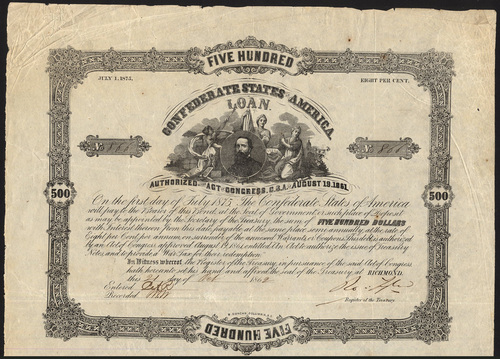 FIVE HUNDRED
JULY 1, 1875.
EIGHT PER CENT.
CONFEDERATE STATES AMERICA
LOAN
AUTHORIZED ACT CONGRESS, C.S.A. AUGUST 19, 1861.
500
500
On the first day of July 1875 The Confederate States of America
will pay to the Bearer of this Bond, at the seat of Government, or such place of Deposit
as may be appointed by the Secretary of the Treasury, the sum of FIVE HUNDRED DOLLARS
with Interest thereon from this date, payable at the same place semi annually, at the rate of
Eight per Cent per annum, on surrender of the annexed Warrants or Coupons. This debt is authorized
by an Act of Congress approved August 19, 1861, entitled An Act to authorize the issue of Treasury
Notes, and to provide a War Tax for their redemption.
In Witness whereof, the Register of the Treasury, in pursuance of the said Act of Congress
hath hereunto set his hand and affixed the seal of the Treasury, at RICHMOND,
this day of 186
Entered
Recorded
Register of the Treasury
FIVE HUNDRED